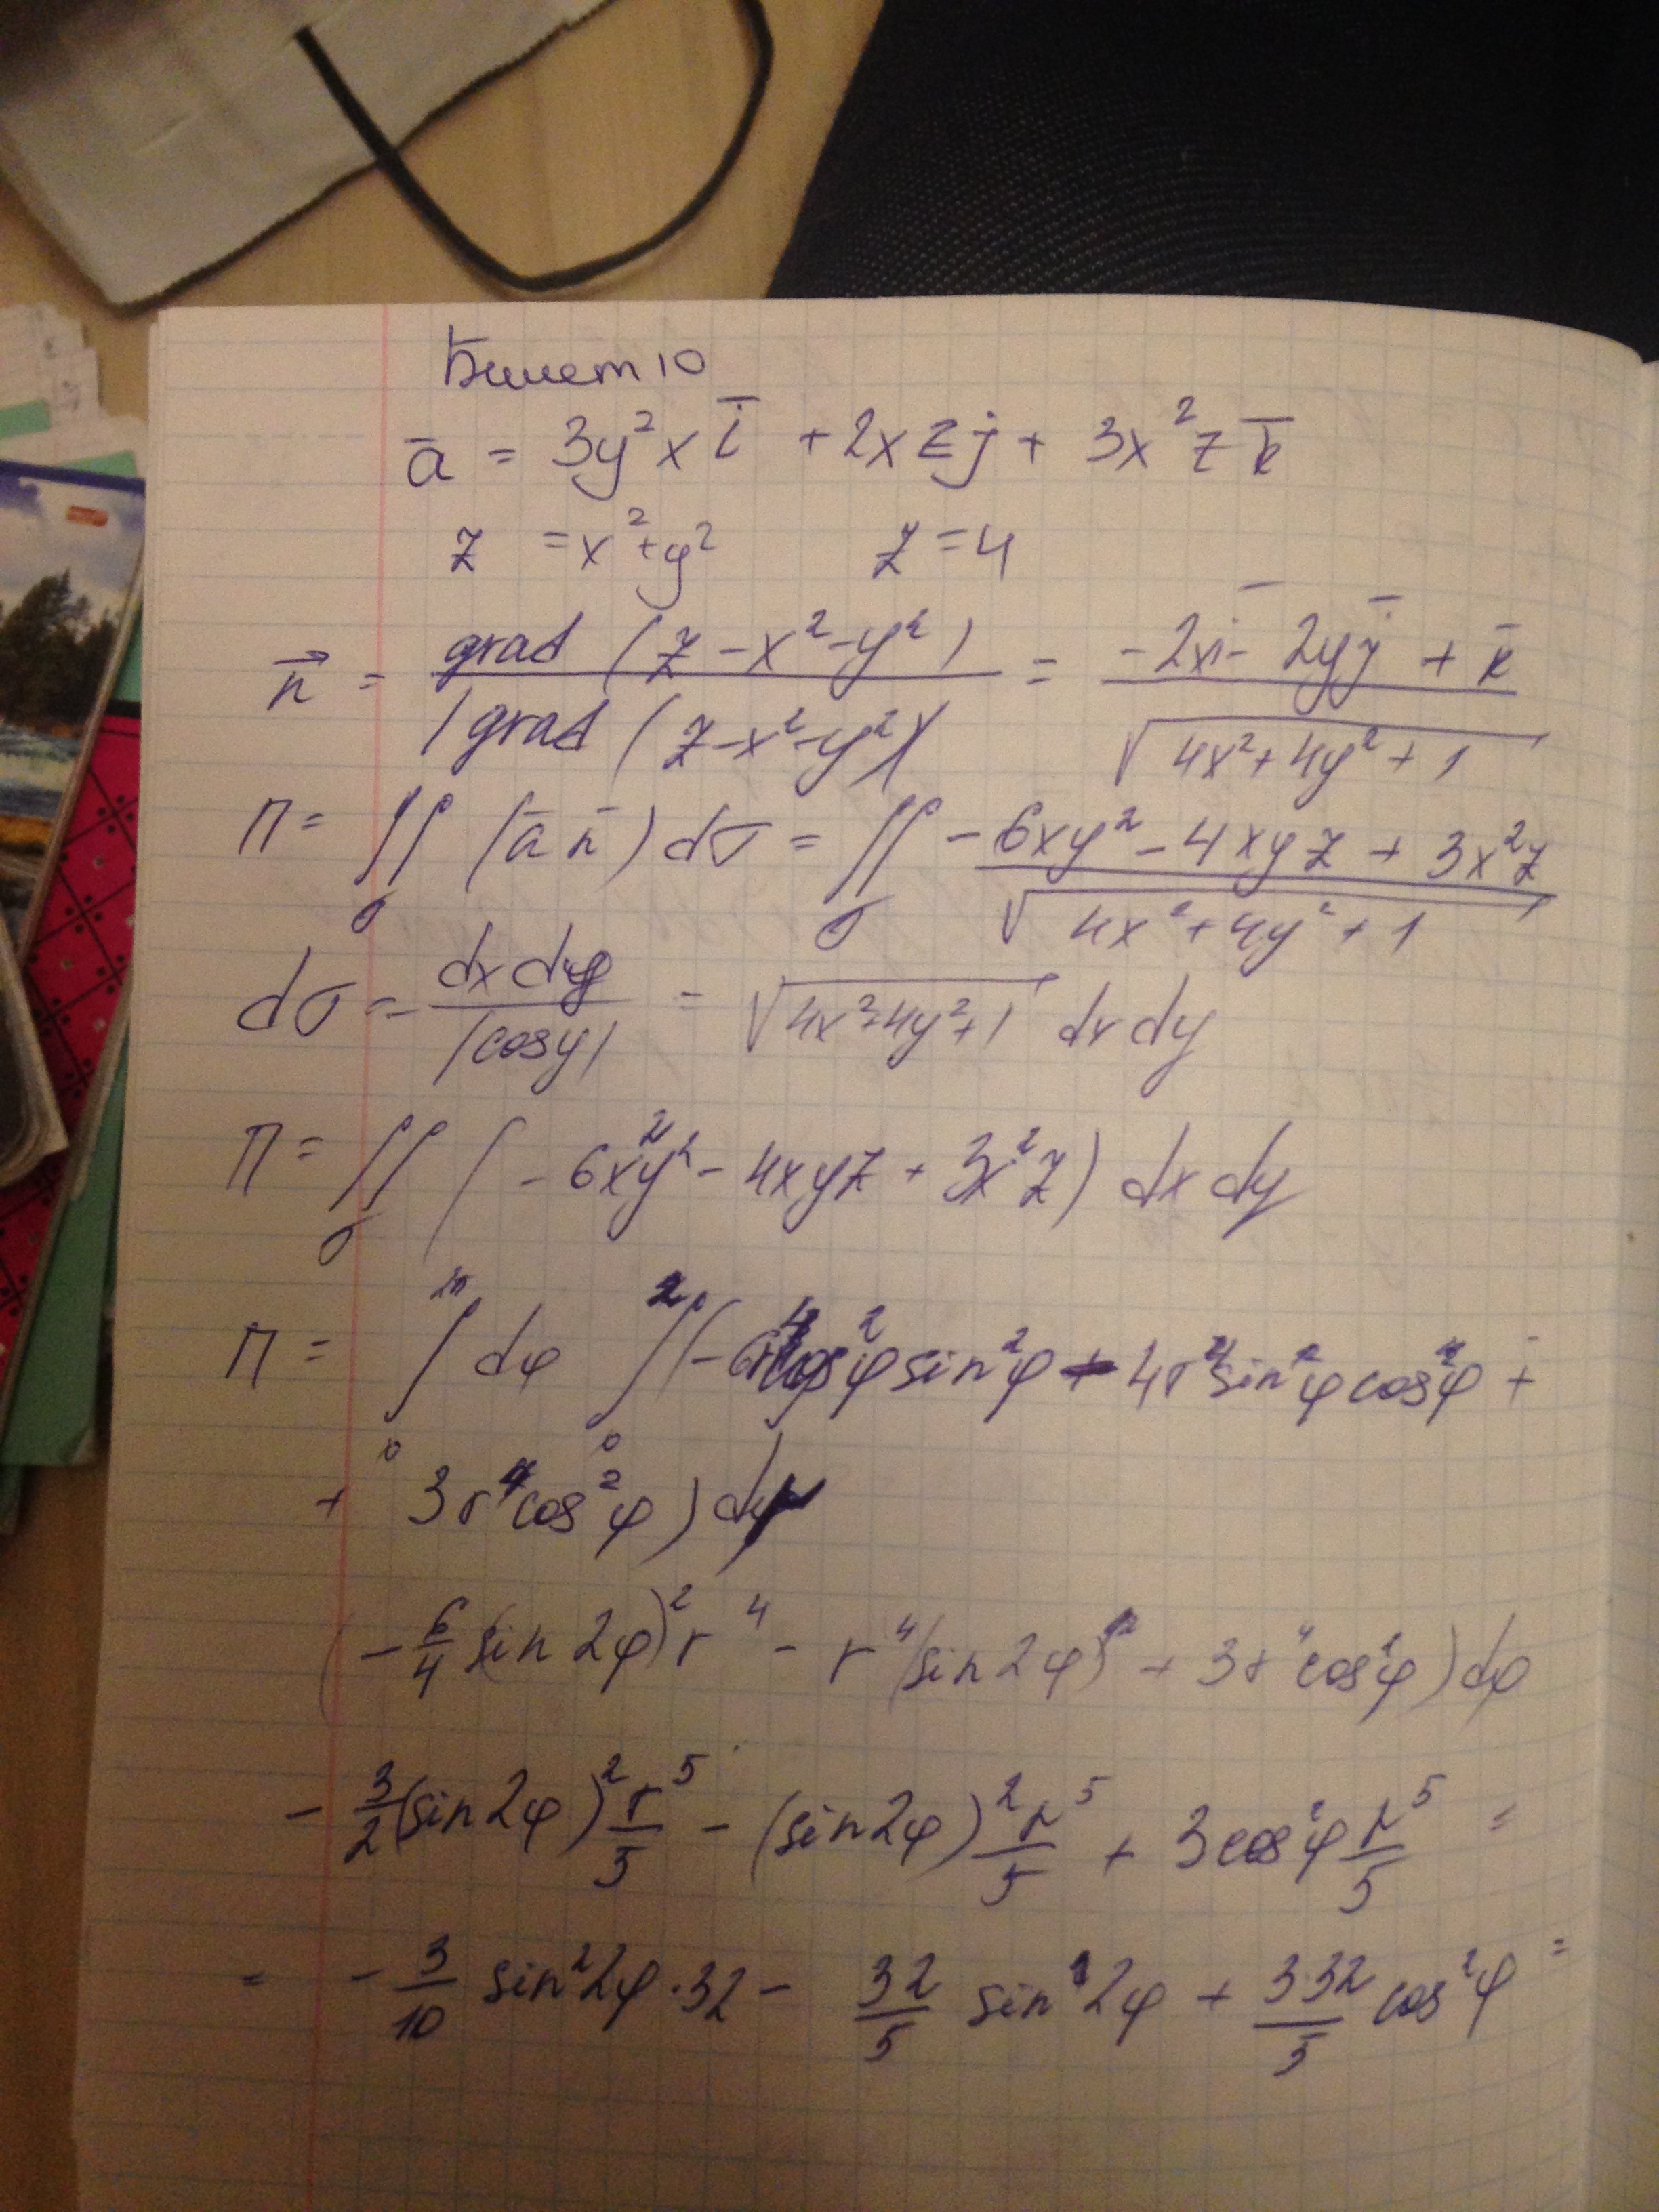 Билет 10
a̅ = 3y²x i̅ + 2xzj + 3x²z k̅
z = x²+y² z = 4
n⃗ = grad (z - x² - y²) / |grad (z - x² - y²)| = (-2xi̅ - 2yj̅ + k̅) / √(4x² + 4y² + 1)
П = ∬_σ (a̅ n̅) dσ = ∬_σ (-6xy² - 4xyz + 3x²z) / √(4x² + 4y² + 1)
dσ = dx dy / |cosγ| = √(4x²+4y²+1) dx dy
П = ∬_σ (-6x²y² - 4xyz + 3x²z) dx dy
П = ∫ dφ ∫₀² (-6r⁴cos²φ sin²φ - 4r⁴sin²φ cos²φ +
+ 3r⁴cos²φ) dr
(-6/4 (sin 2φ)² r⁴ - r⁴(sin 2φ)² + 3r⁴cos²φ) dφ
- 3/2 (sin 2φ)² r⁵/5 - (sin 2φ)² r⁵/5 + 3cos²φ r⁵/5 =
= - 3/10 sin²2φ·32 - 32/5 sin²2φ + 3·32/5 cos²φ =